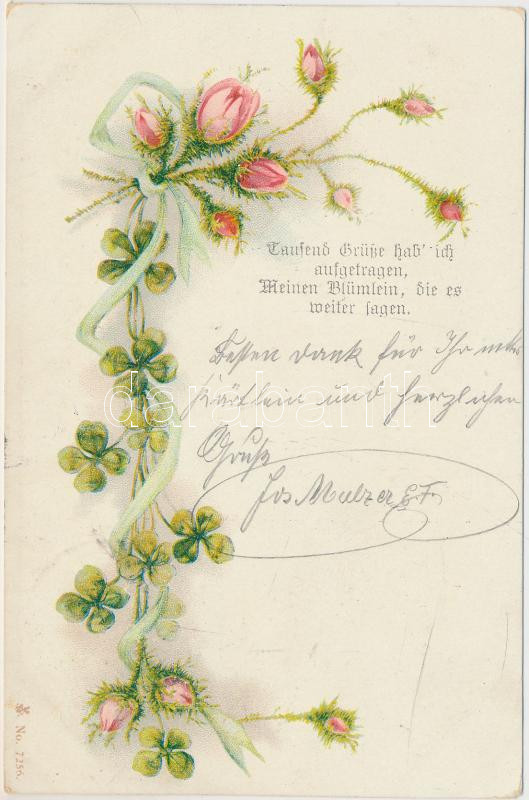 Tausend Grüße hab' ich
aufgetragen,
Meinen Blümlein, die es
weiter sagen.
Besten dank für Ihr
Kärtlein und herzlichen
Gruß
Jos Mulzer
darabanth
No. 7256.